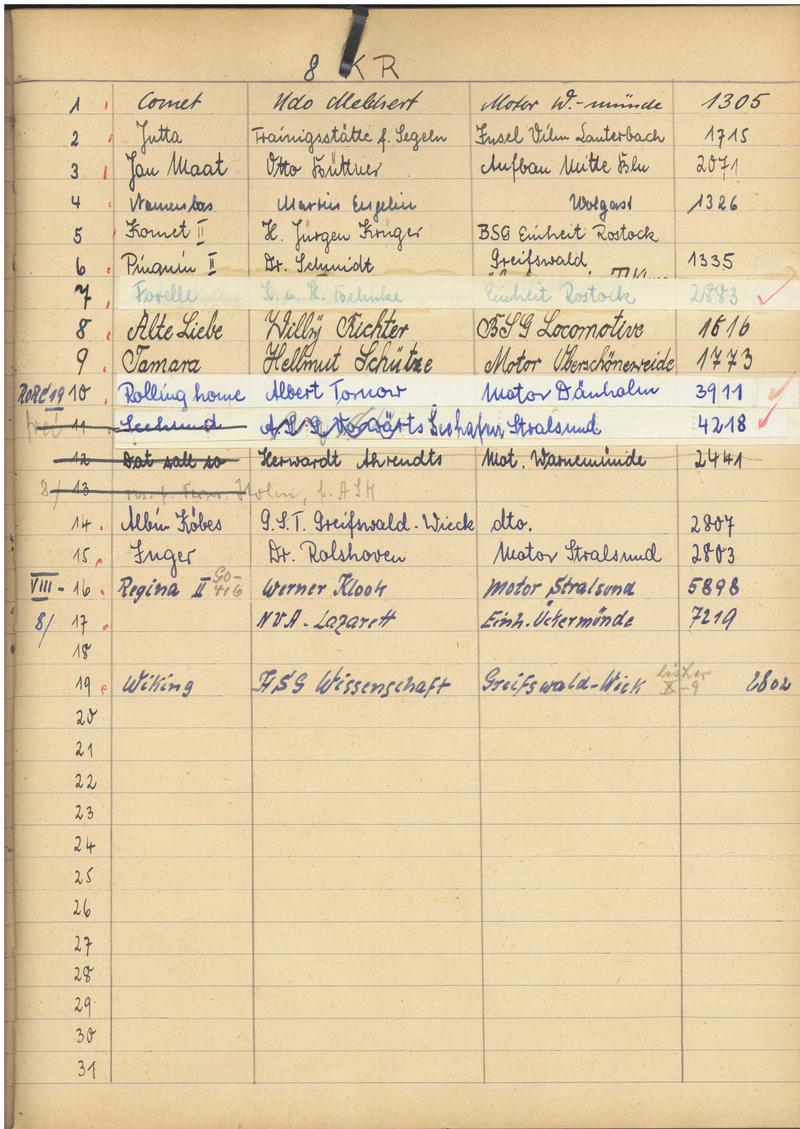 8 KR
1 Comet Udo Melchert Motor W.-münde 1305
2 Jutta Trainigsstätte f. Segeln Insel Vilm Lauterbach 1715
3 Jan Maat Otto Hüttner Aufbau Mitte Bln 2071
4 Namenlos Martin Engelin Wolgast 1326
5 Komet II H. Jürgen Krüger BSG Einheit Rostock
6 Pinguin II Dr. Schmidt Greifswald 1335
7 Forelle K. u. H. Behnke Einheit Rostock 2883
8 Alte Liebe Willy Richter BSG Locomotive 1616
9 Tamara Hellmut Schütze Motor Oberschöneweide 1773
RORC 19 10 Rolling home Albert Tornow Motor Dänholm 3911
III
frei 11 Seehund A.S.G. Vorwärts Seehafen Stralsund 4218
12 Dat sall so Herwardt Ahrendts Mot. Warnemünde 2441
8/ 13 res. f. Holm, f. ASK
14 Albin Köbes G.S.T. Greifswald-Wieck dto. 2807
15 Inger Dr. Rolshoven Motor Stralsund 2803
VIII - 16 Regina II GO-416 Werner Klook Motor Stralsund 5898
8/ 17 NVA-Lazarett Einh. Ückermünde 7219
18
19 Wiking HSG Wissenschaft Greifswald-Wick bisher X-9 2802
20
21
22
23
24
25
26
27
28
29
30
31